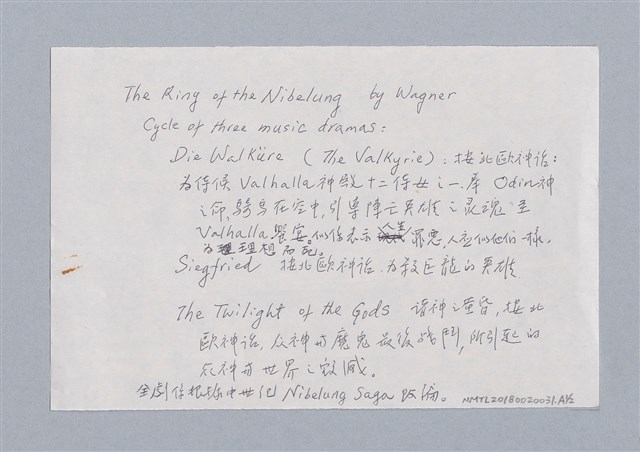 The Ring of the Nibelung by Wagner
Cycle of three music dramas:
Die Walküre ( The Valkyrie ) : 按北歐神話:
為侍候 Valhalla 神殿十二侍女之一. 奉 Odin 神
之命, 騎馬在空中, 引導陣亡英雄之灵魂至
Valhalla 饗宴。似係表示 罪惡, 人应似他们一樣,
為理理想而死。
Siegfried 按北歐神話 为殺巨龍的英雄
The Twilight of the Gods 諸神之黃昏, 按北
歐神話, 众神与魔鬼最後战鬥, 所引起的
众神与世界之毀滅。
全劇係根據中世纪 Nibelung Saga 改编。
NMTL20180020031.A½